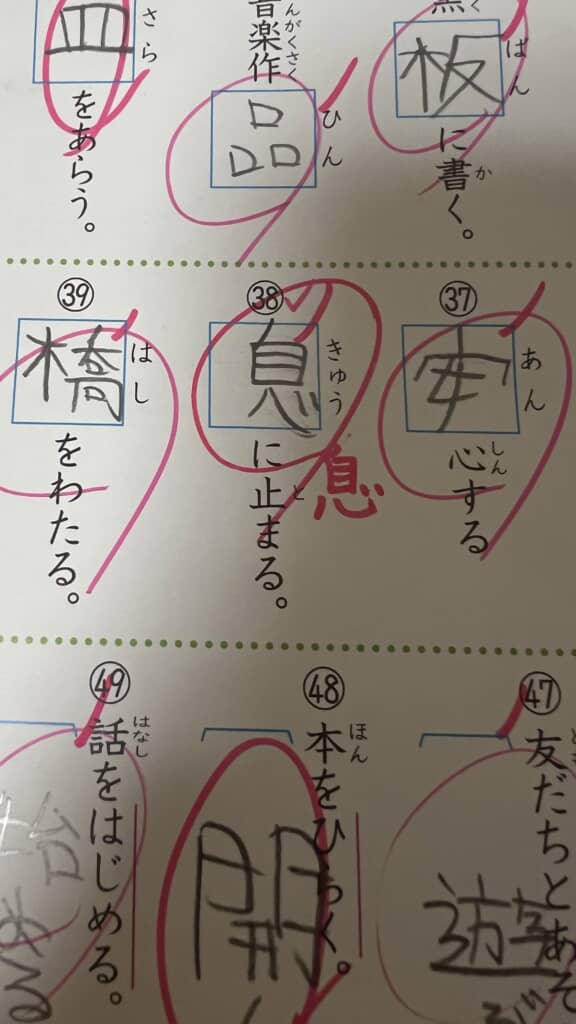 板に書く。
ばん
か
音楽作品
んがくさく
ひん
皿をあらう。
さら
㊲
安心する
あん
しん
㊳
息に止まる。
きゅう
と
息
㊴
橋をわたる。
はし
㊼
友だちとあそ
遊
㊽
本をひらく。
ほん
開
㊾
話をはじめる。
はなし
始める